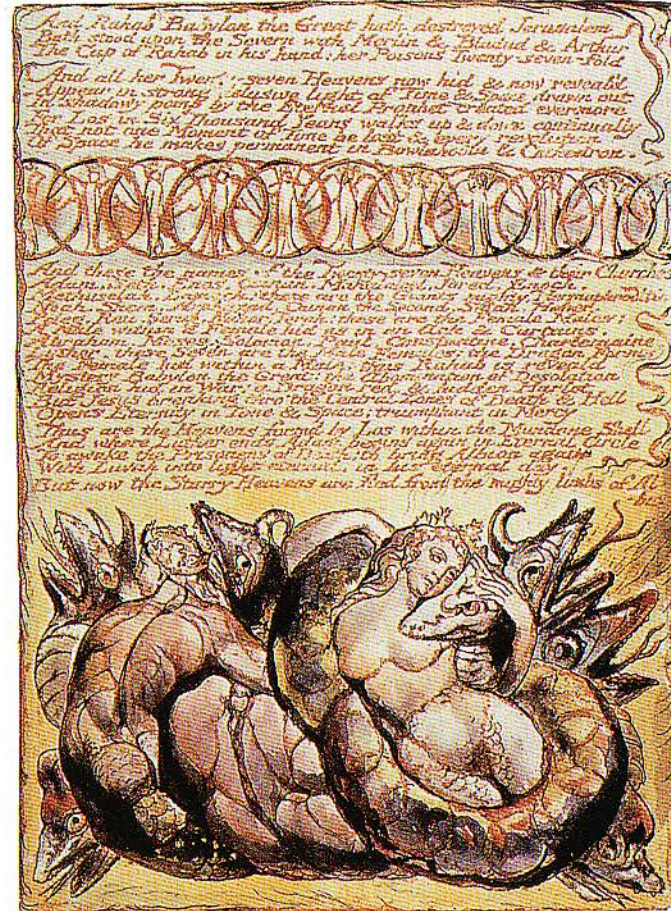 And Rahab Babylon the Great hath destroyed Jerusalem
Bath stood upon the Severn with Merlin & Bladud & Arthur
The Cup of Rahab in his hand: her Poisons Twenty-seven-fold
And all her Twenty-seven Heavens now hid & now reveal'd
Appear in strong delusive light of Time & Space drawn out
In shadowy pomp by the Eternal Prophet created evermore
For Los in Six Thousand Years walks up & down continually
That not one Moment of Time be lost & every revolution
Of Space he makes permanent in Bowlahoola & Cathedron.
And these the names of the Twenty-seven Heavens & their Churches
Adam, Seth, Enos, Cainan, Mahalaleel, Jared, Enoch,
Methuselah, Lamech: these are the Giants mighty Hermaphroditic
Noah, Shem, Arphaxad, Cainan the Second, Salah, Heber,
these the Female Males:
A Male within a Female hid as in an Ark & Curtains.
Abraham, Moses, Solomon, Paul, Constantine, Charlemaine
Luther, these Seven are the Male Females: the Dragon Forms
The Female hid within a Male: thus Rahab is reveald
Mystery Babylon the Great: the Abomination of Desolation
Religion hid in War: a Dragon red & hidden Harlot
But Jesus breaking thro' the Central Zones of Death & Hell
Opens Eternity in Time & Space; triumphant in Mercy
Thus are the Heavens formd by Los within the Mundane Shell
And where Luther ends Adam begins again in Eternal Circle
To awake the Prisoners of Death; to bring Albion again
With Luvah into light eternal, in his eternal day.
But now the Starry Heavens are fled from the mighty limbs of Al